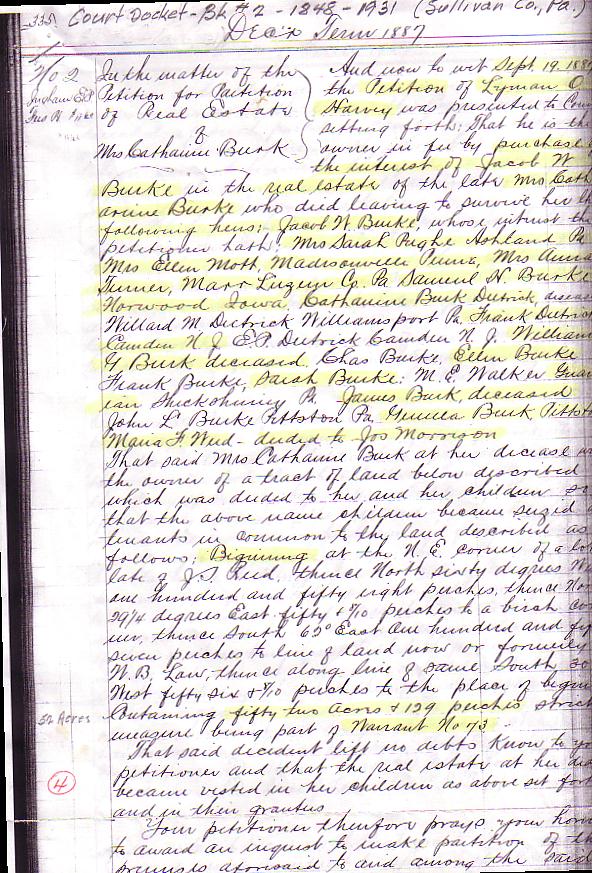 335 Court Docket - Bk #2 - 1848 - 1931 (Sullivan Co., Pa.)
Dec'r Term 1887
No 2
In the matter of the
Petition for Partition
of Real Estate
of
Mrs Catharine Burk
And now to wit Sept 19 188
the Petition of Lyman O
Harvey was presented to Cou
setting forth: That he is the
owner in fee by purchase o
the interest of Jacob W
Burke in the real estate of the late Mrs Cath
arine Burke who died leaving to survive her th
following heirs; Jacob W. Burke, whose intrust the
petitioner hath, Mrs Sarah Pughe Ashland Pa
Mrs Ellen Mott, Madisonville Penna, Mrs Anna
Turner, Marr Luzern Co. Pa Samuel H. Burke
Norwood Iowa, Catharine Burk Dietrick, diseas
Willard M. Dietrick Williamsport Pa, Frank Dietric
Camden N J E. P. Dietrick Camden N. J. William
G Burk deceased, Chas Burke, Ellen Burke
Frank Burke, Sarah Burke: M. E. Walker Guar
ian Shickshinny Pa James Burk, deceased
John L Burke Pittston Pa Burk, Pittst
Maria F Weed - deeded to Jos Morrison
That said Mrs Catharine Burk at her dicease w
the owner of a tract of land below discribed
which was deeded to her and her children so
that the above name children became seized a
tenants in common to the land described as
follows; Biginning at the N. E. corner of a lot
late of J. S. Reed, thence North sixty degrees W
one hundred and fifty eight perches, thence Nor
29 1/4 degrees East fifty & 7/10 perches to a birch co
ner, thence South 62° East One hundred and fif
seven perches to line of land now or formerly
W. B. Law, thence along line of same South 30
West fifty six & /10 perches to the place of begin
Containing fifty two Acres & 129 perches strict
measure being part of Warrant No 73
52 Acres
That said decident left no debts Know to yo
petitioner and that the real estate at her dea
became vested in her children as above set fort
and in their grantus
4
Your petitioner therefore prays your hono
to award an inquest to make partition of th
premises aforesaid to and among the said